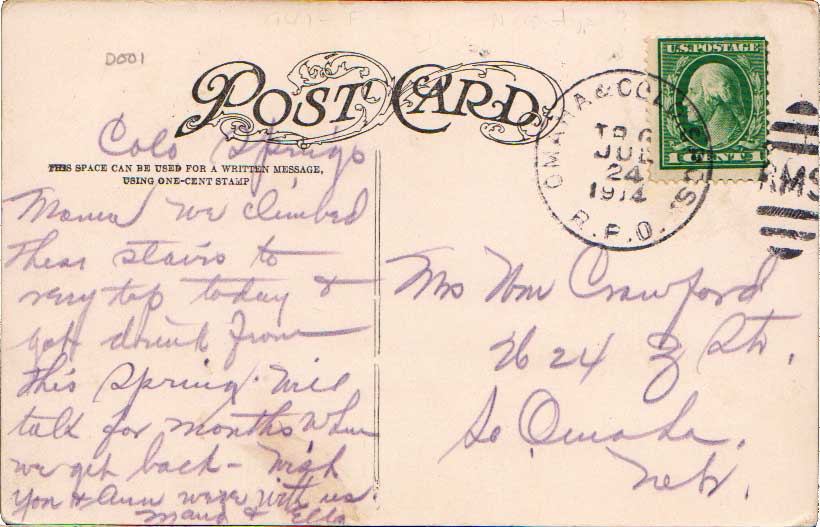 D001
POST CARD
Colo Springs
THIS SPACE CAN BE USED FOR A WRITTEN MESSAGE,
USING ONE-CENT STAMP
Mama we climbed
thear stairs to
very top today &
got drink from
this Spring. Will
talk for months when
we get back – wish
you & Ann were with us.
& Ella
U.S. POSTAGE
1 CENT 1
OMAHA & COLO SPGS
TR 6
JUL
24
1914
R.P.O.
RMS
Mrs Wm Crawford
24 Sts.
So Omaha,
Nebr.